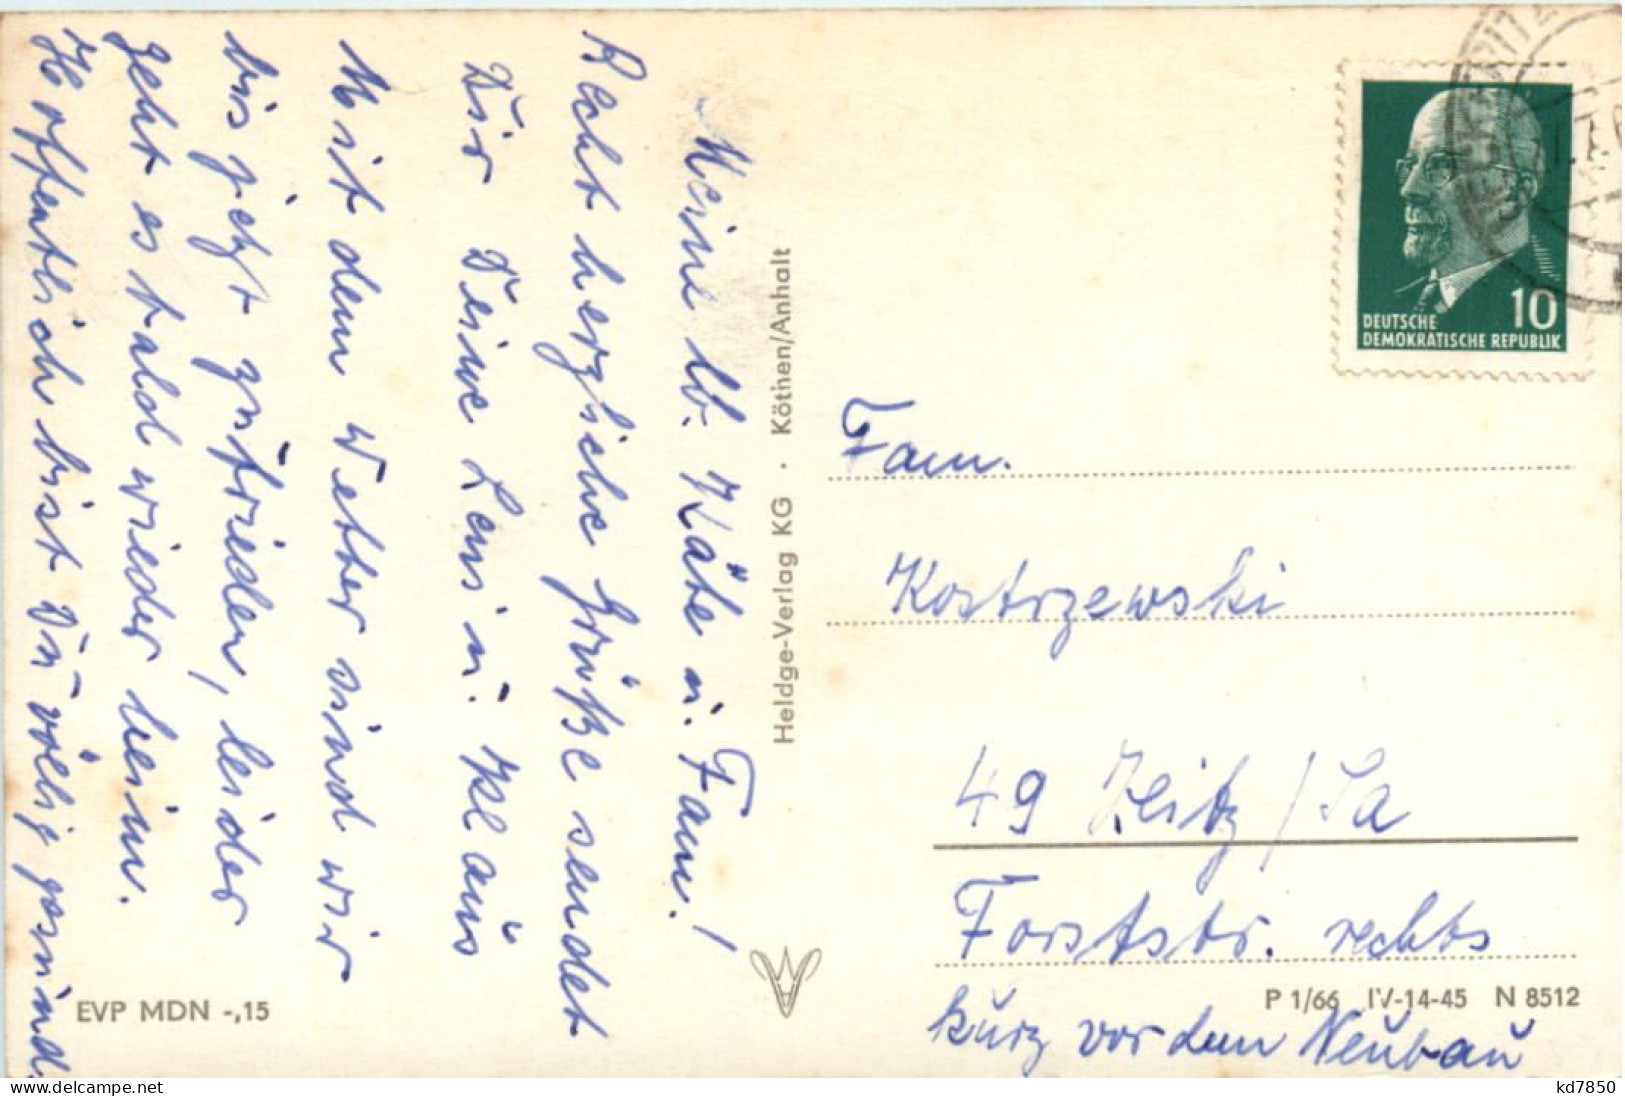 Meine lb. Käte u. Fam.!
Recht herzliche Grüße sendet
Dir Deine Leni u. Klaus
Mit dem Wetter sind wir
bis jetzt zufrieden, leider
geht es bald wieder heim.
Hoffentlich bist Du völlig gesund.
EVP MDN -,15
Heldge-Verlag KG · Köthen/Anhalt
10
DEUTSCHE
DEMOKRATISCHE REPUBLIK
Fam.
Kostrzewski
49 Zeitz / Sa
Forststr. rechts
P 1/66 IV-14-45 N 8512
kurz vor dem Neubau
kd7850